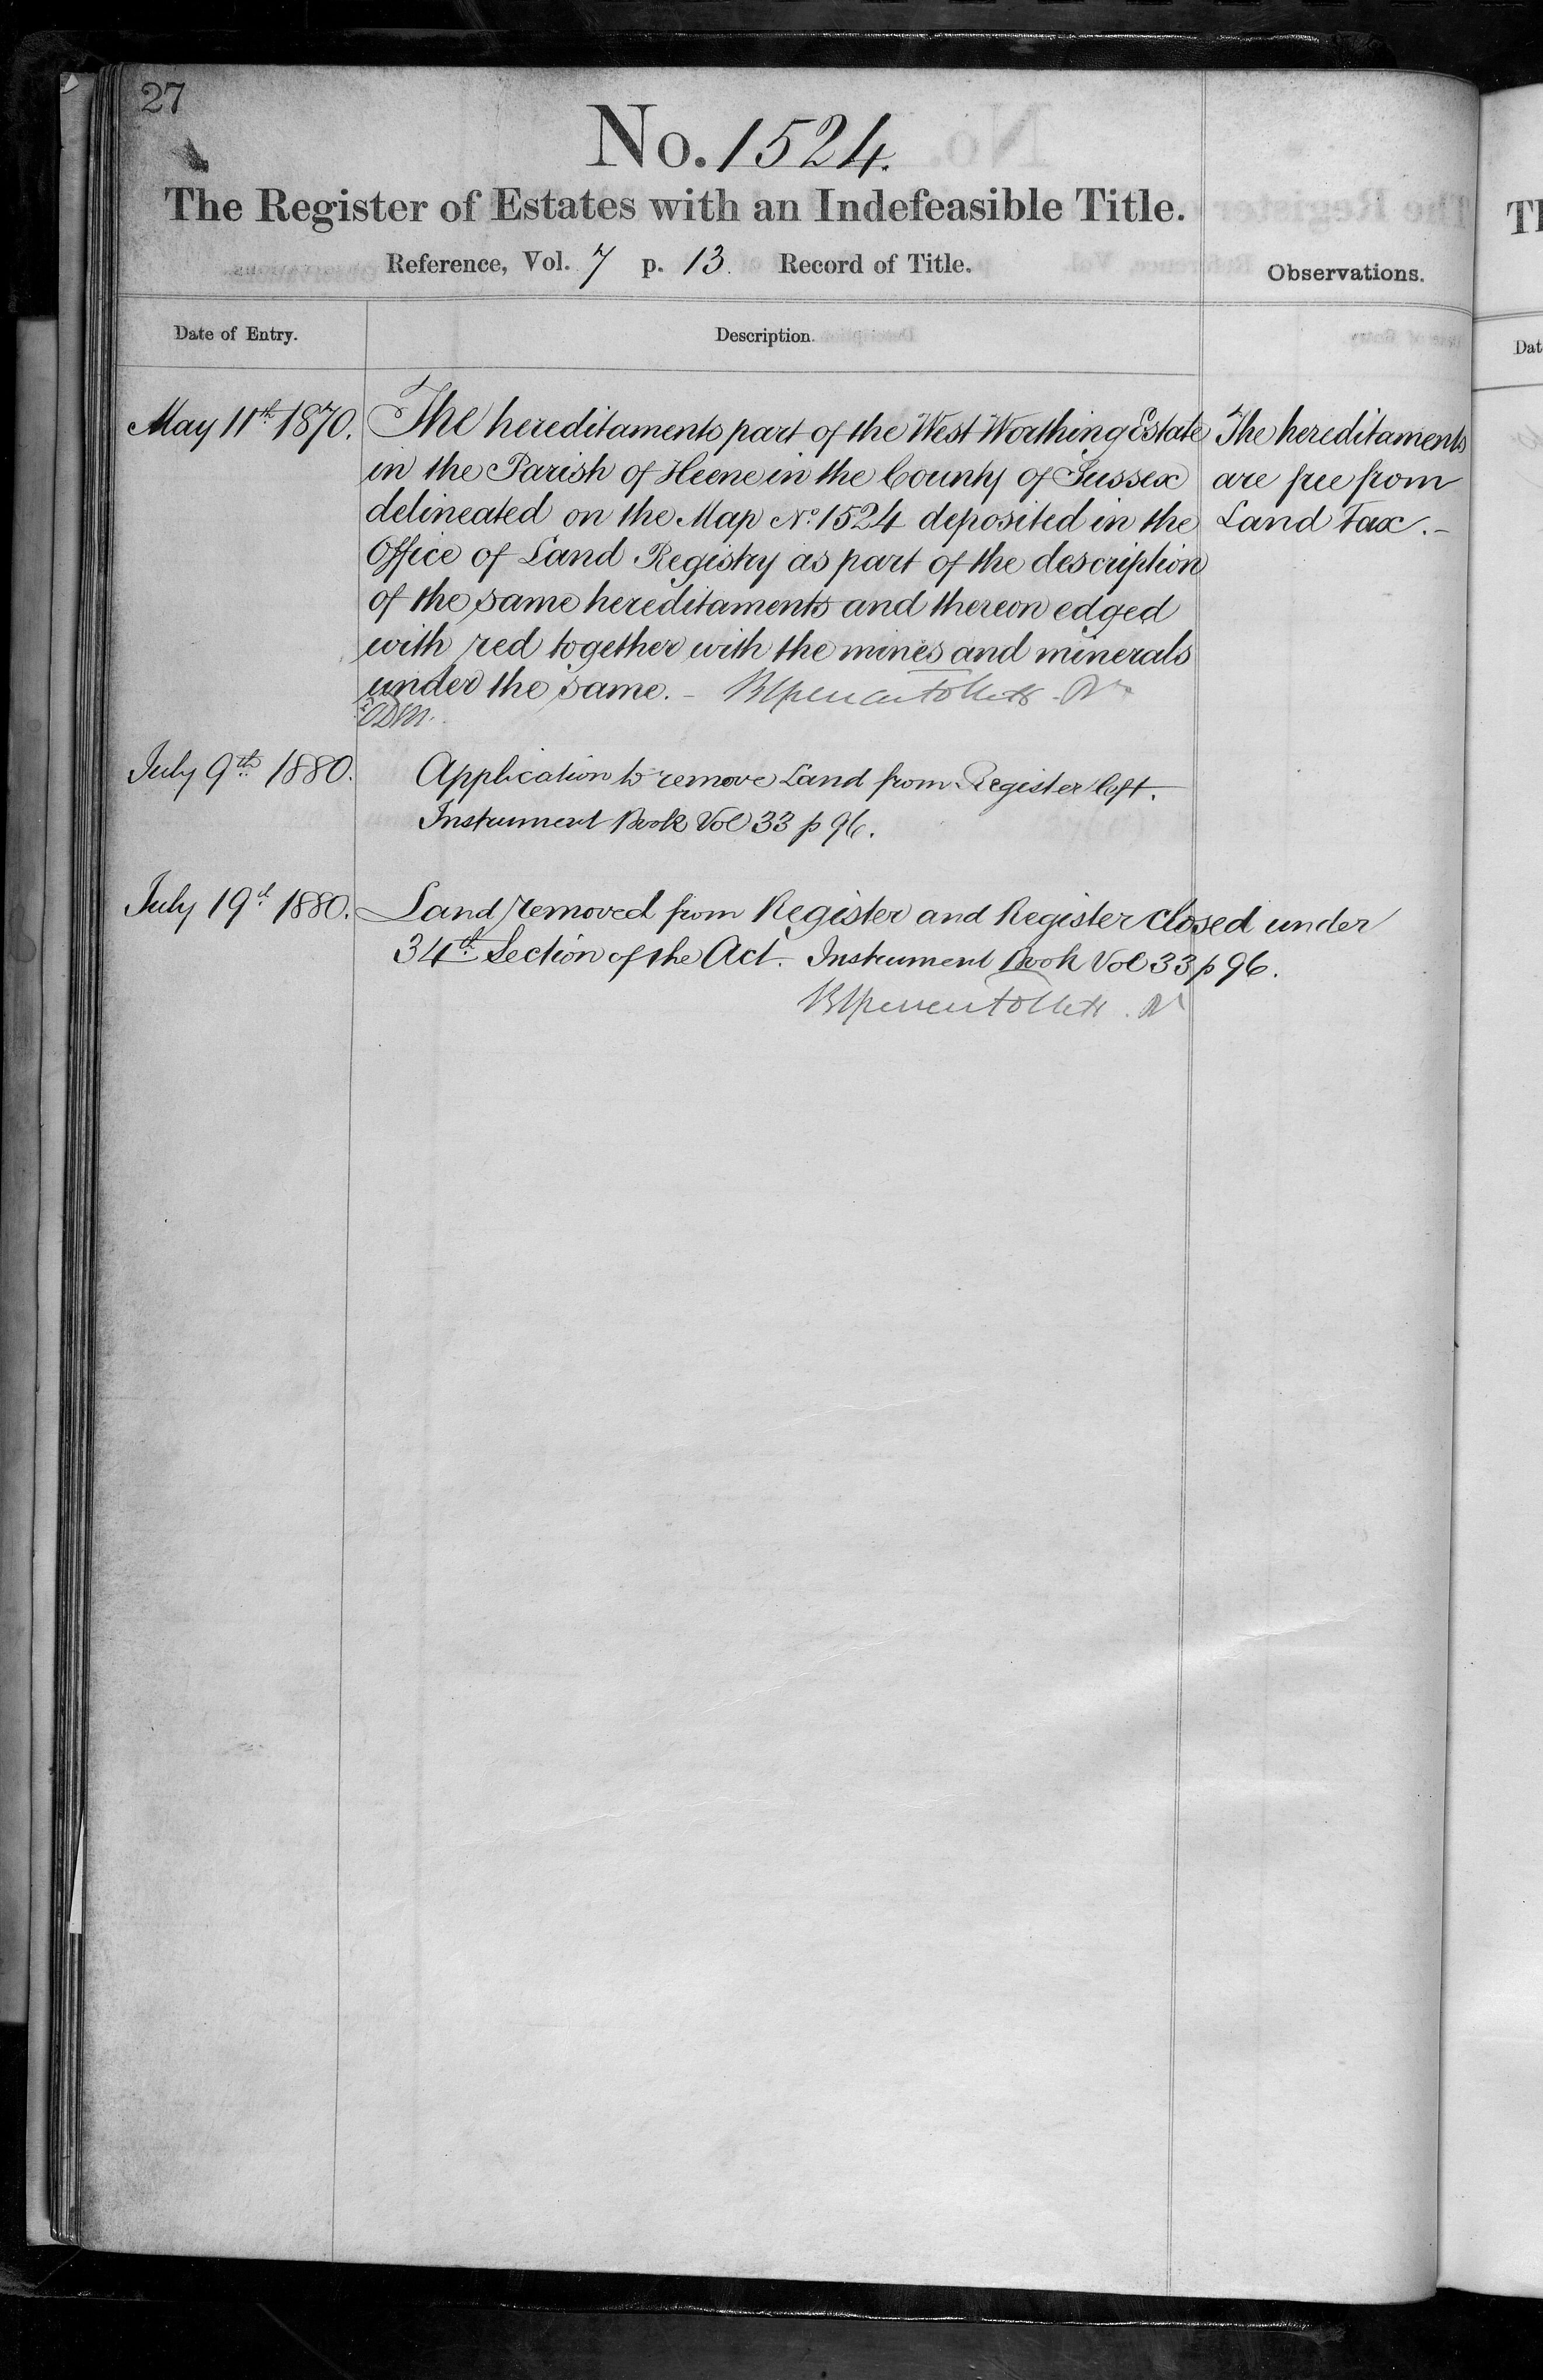 27
No. 1524.
The Register of Estates with an Indefeasible Title.
Reference, Vol. 7 p. 13. Record of Title.
Observations.
Date of Entry.
Description.
May 11th 1870.
The hereditaments part of the West Worthing Estate
in the Parish of Heene in the County of Sussex
delineated on the Map No. 1524 deposited in the
Office of Land Registry as part of the description
of the same hereditaments and thereon edged
with red together with the mines and minerals
under the same. -
The hereditaments
are free from
Land Tax. -
July 9th 1880.
Application to remove Land from Register left.
Instrument Book Vol 33 p 96.
July 19th 1880.
Land removed from Register and Register closed under
34th Section of the Act. Instrument Book Vol 33 p 96.
Dat